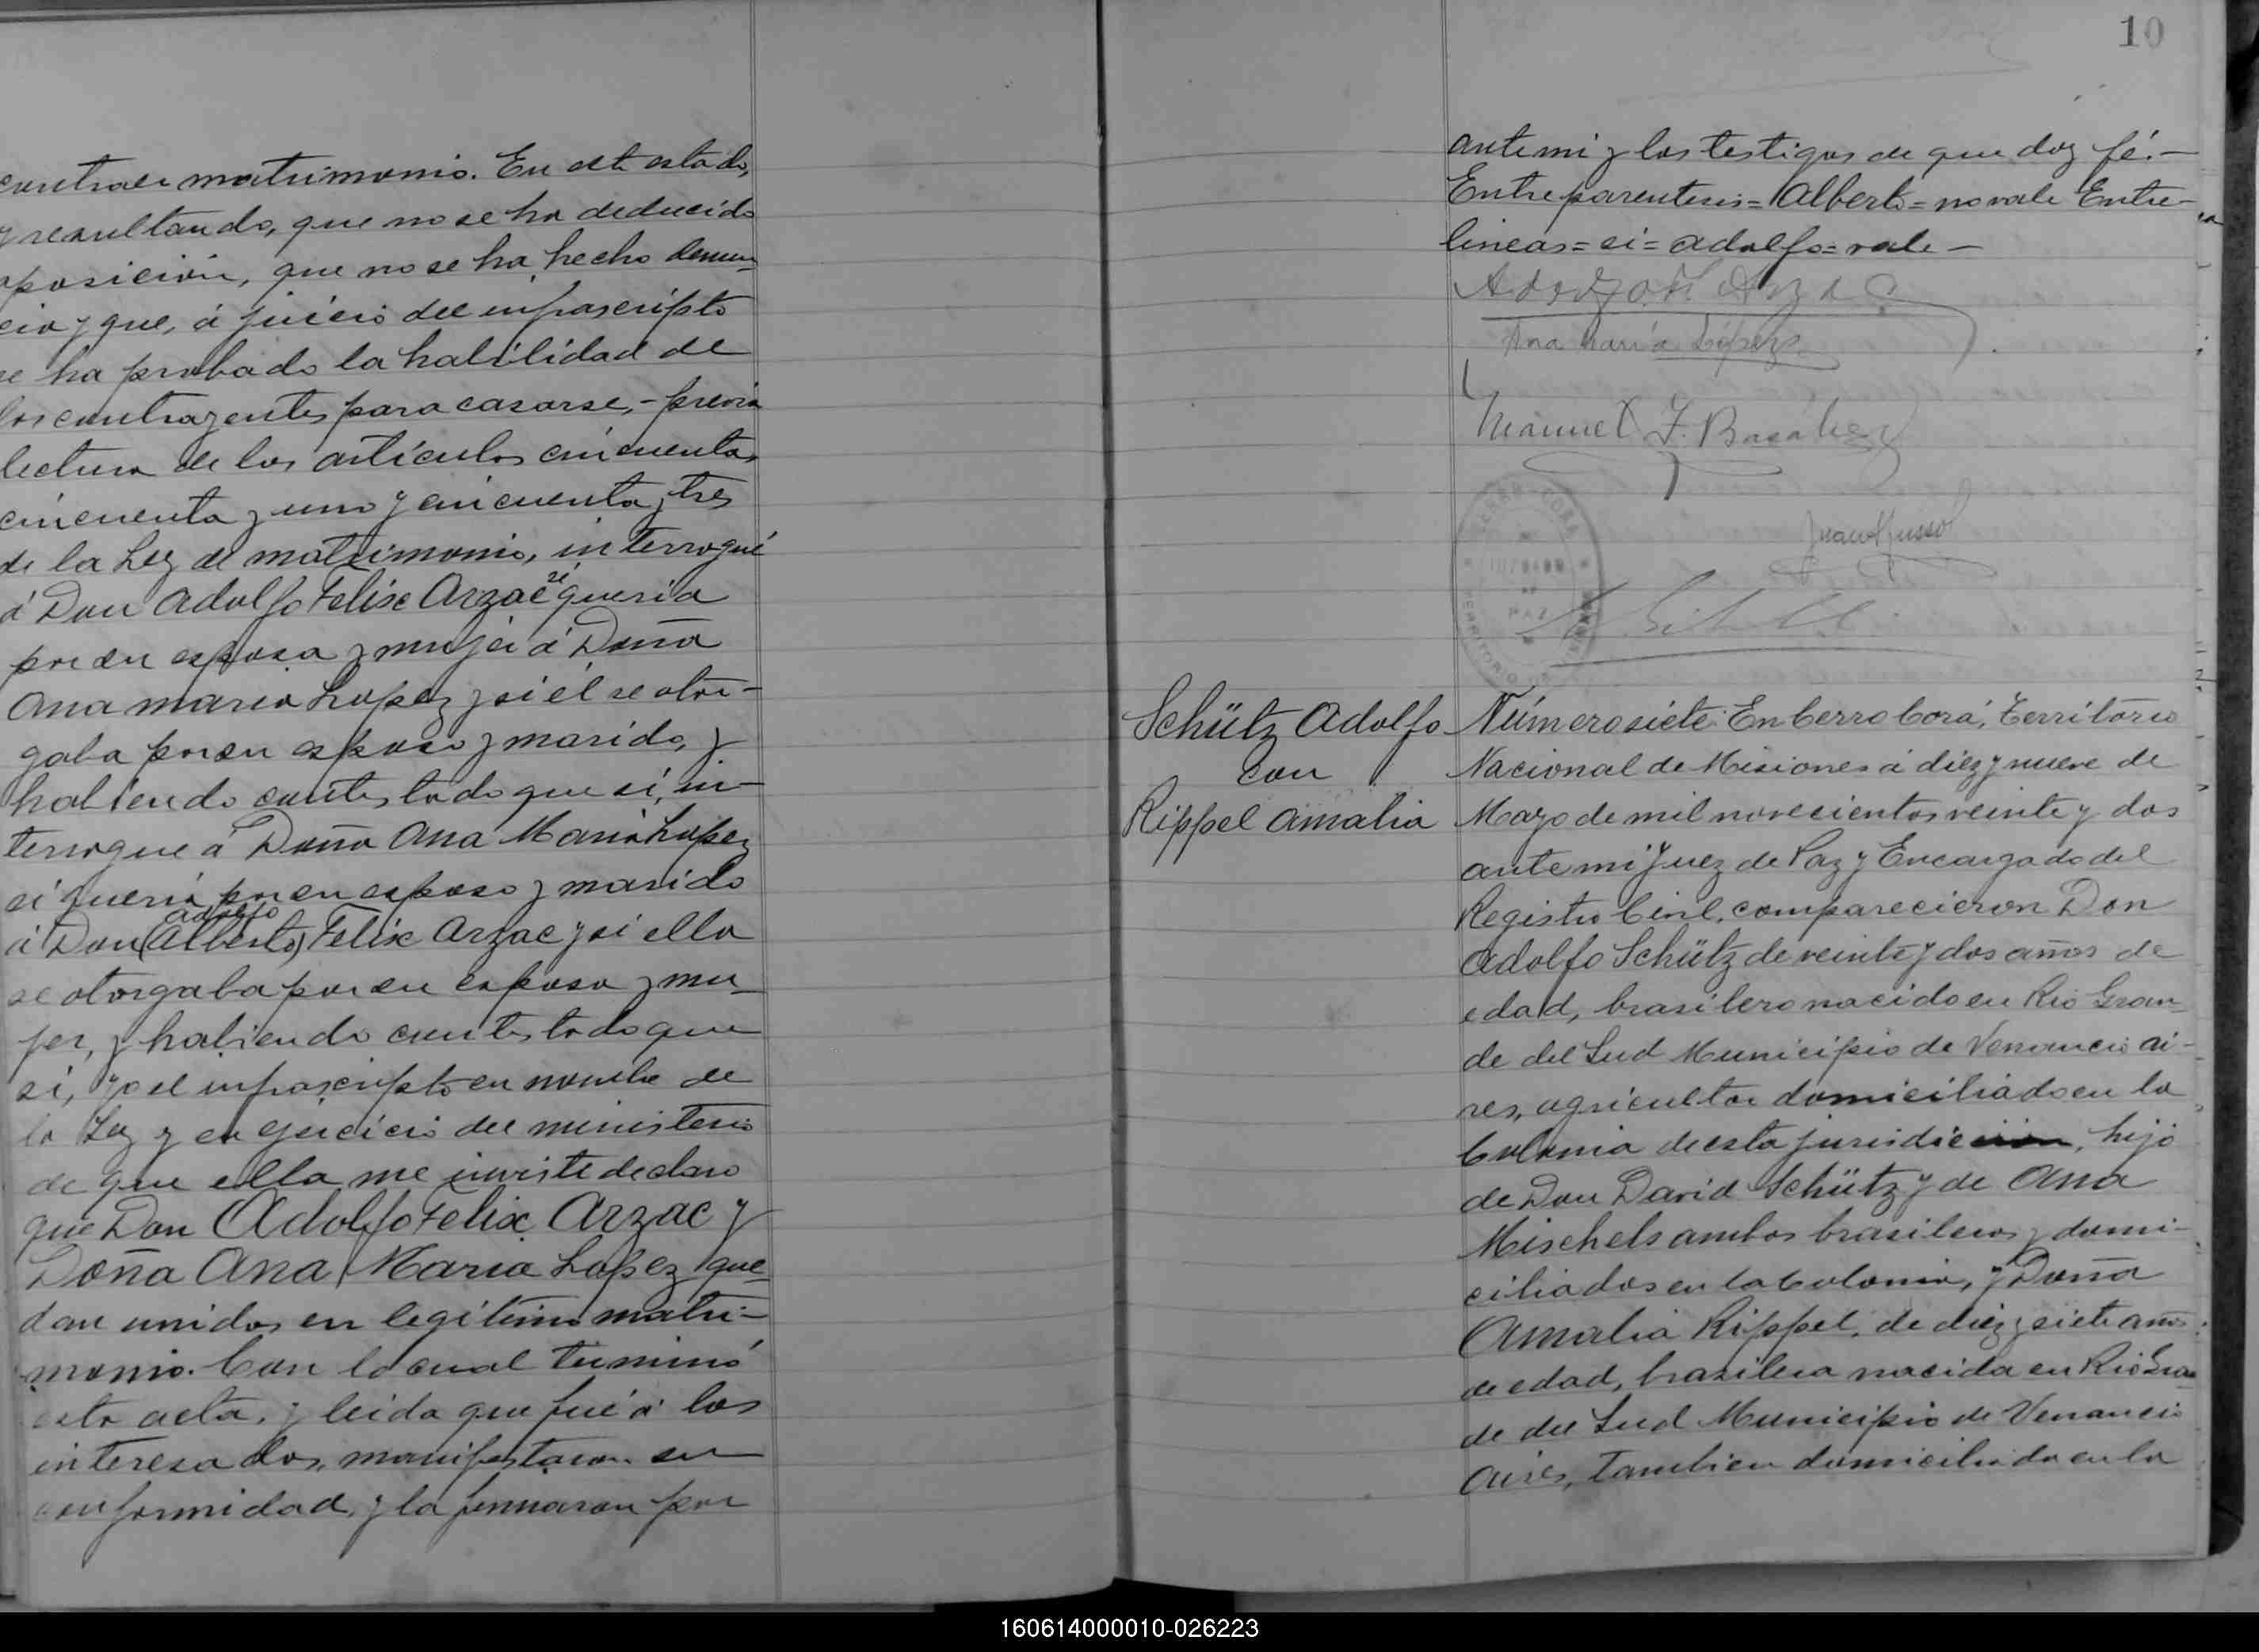 contraer matrimonio. En este estado,
y resultando, que no se ha deducido
oposición, que no se ha hecho denun-
cia y que, á juicio del infrascripto
se ha probado la habilidad de
los contrayentes para casarse, - previa
lectura de los artículos cincuenta,
cincuenta y uno y cincuenta y tres
de la Ley de matrimonio, interrogué
á Don Adolfo Felix Arzac si queria
por su esposa y mujer á Doña
Ana Maria Lopez y si él se otor-
gaba por su esposo y marido, y
habiendo contestado que sí, in-
terrogue á Doña Ana Maria Lopez
si queria por su esposo y marido
adolfo
á Don (Alberto) Felix Arzac y si ella
se otorgaba por su esposa y mu-
jer, y habiendo contestado que
si, yo el infrascripto en nombre de
la Ley y en ejercicio del ministerio
de que ella me inviste declaro
que Don Adolfo Felix Arzac y
Doña Ana Maria Lopez que-
dan unidos en legítimo matri-
monio. Con lo cual terminó
esta acta, y leida que fué á los
interesados, manifestaron su
conformidad, y la firmaron por
10
ante mi y los testigos de que doy fé. -
Entre parentesis = Alberto = no vale Entre-
lineas = si = adolfo = vale -
Ana María López
Manuel F. Basa
Schütz Adolfo
con
Rippel Amalia
Número siete. En Cerro Corá, Territorio
Nacional de Misiones á diez y nueve de
Mayo de mil novecientos veinte y dos
ante mi Juez de Paz y Encargado del
Registro Civil, comparecieron Don
Adolfo Schütz de veinte y dos años de
edad, brasilero nacido en Rio Gran-
de del Sud Municipio de Venancio ai-
res, agricultor domiciliado en la
Colonia de esta jurisdiccion, hijo
de Don David Schütz y de Ana
Mischels ambos brasileros y domi-
ciliados en la Colonia, y Doña
Amalia Rippel, de diez y siete años
de edad, brasilera nacida en Rio Gran
de del Sud Municipio de Venancio
Aires, tambien domiciliada en la
160614000010-026223